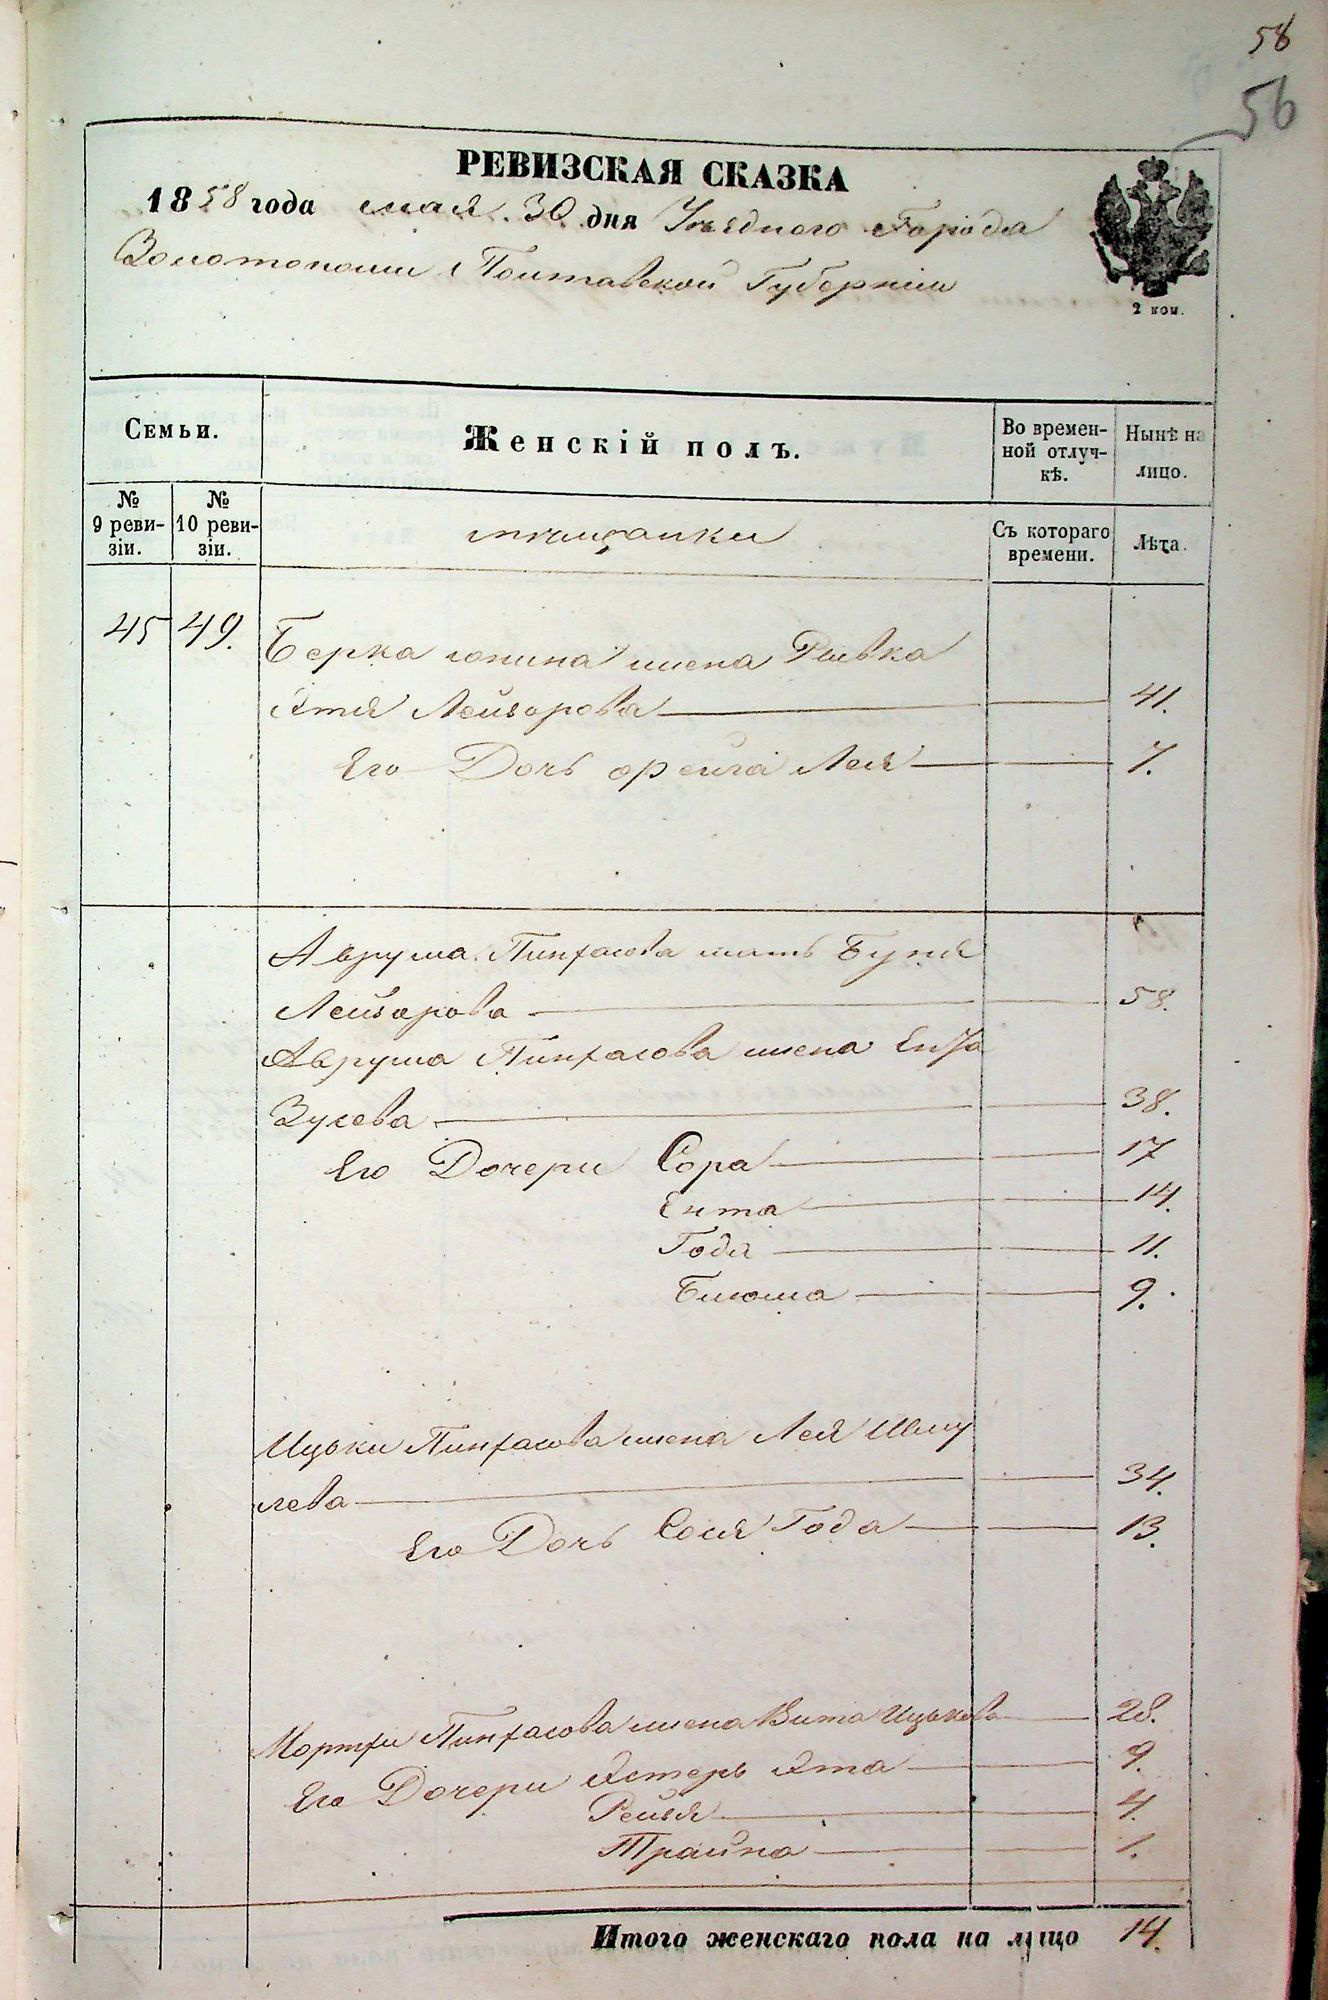 58
56
РЕВИЗСКАЯ СКАЗКА
1858 года мая 30 дня Уѣзднаго Города
Золотоноши Полтавской Губерніи
2 коп.
Семьи.
Женскій полъ.
Во времен-
ной отлуч-
кѣ.
Нынѣ на
лицо.
№
9 реви-
зіи.
№
10 реви-
зіи.
мѣщанки
Съ котораго
времени.
Лѣта.
45 49. Берка жена Ривка
Лейзорова 41.
Его Дочь Фейга Лея 7.
Аврума Пинхасова мать Буня
Лейзорова 58.
Аврума Пинхасова жена
Зусева 38.
Его Дочери Сора 17
Ента 14.
Годя 11.
Блюма 9.
Ицьки Пинхасова жена Лея Шму
лева 34.
Его Дочь Сося Года 13.
Мортхи Пинхасова жена Вита Ицькова 28.
Его Дочери Эстерь Эта 9.
Рейзя 4.
Трайна 1.
Итого женскаго пола на лицо 14.